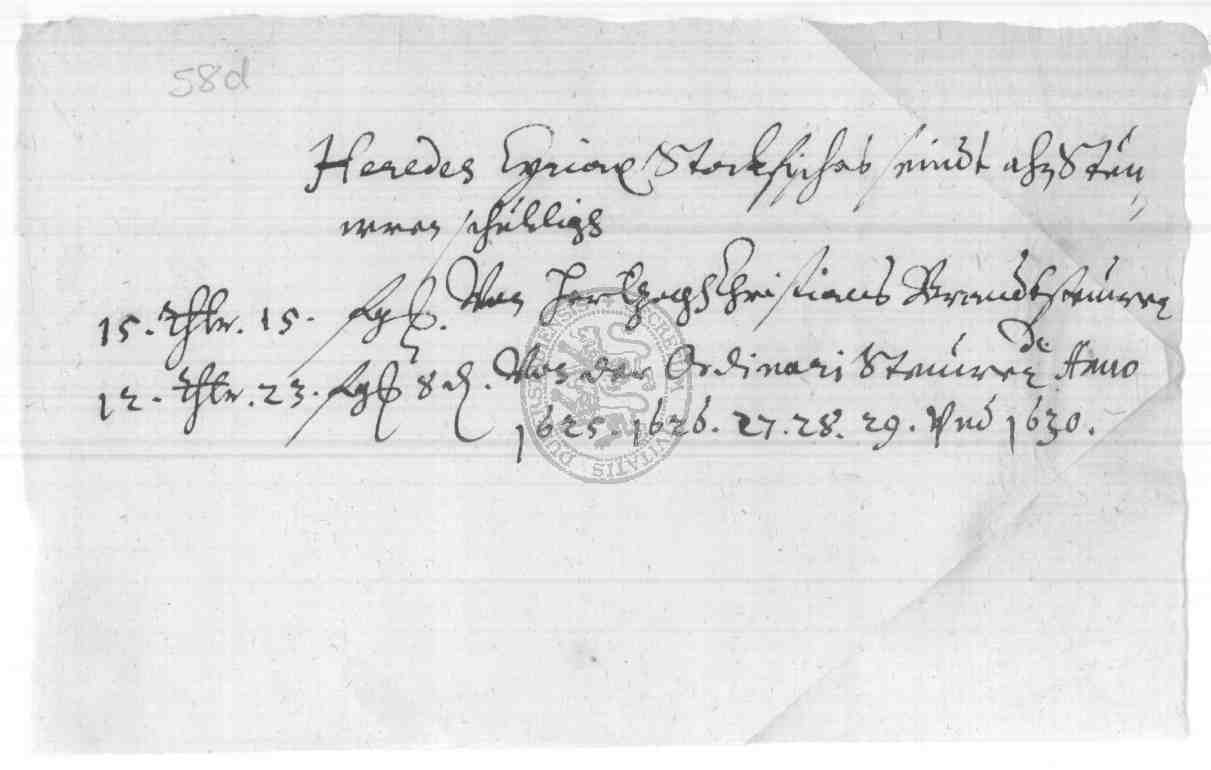 58d
Heredes Cyriax Stockfisches seindt ahn Steu,,
wren schuldigh
15. thlr. 15. sgl. Von Hertzogh Christians Brandtsteuwren
12. thlr. 23. sgl 8 d. Von der Ordinari Steuwren de Anno
1625. 1626. 27. 28. 29. Und 1630.